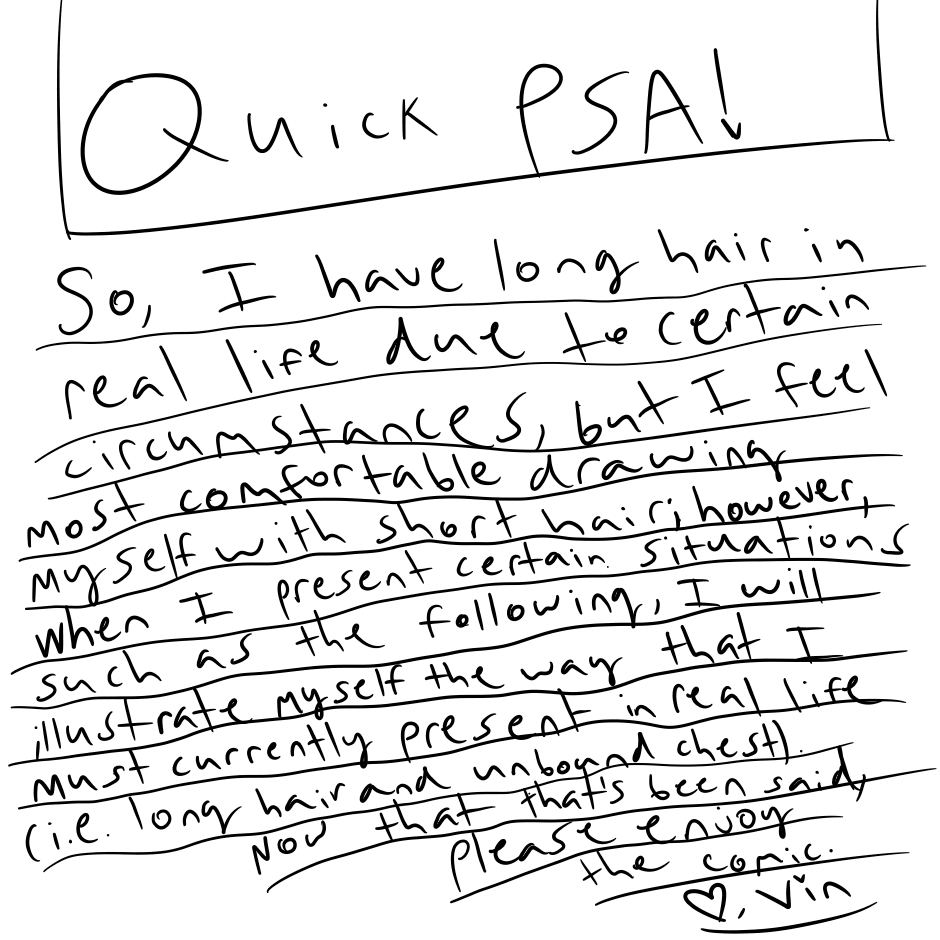 Quick PSA!
So, I have long hair in
real life due to certain
circumstances, but I feel
most comfortable drawing
myself with short hair; however,
when I present certain situations
such as the following, I will
illustrate myself the way that I
must currently present in real life
(i.e. long hair and unbound chest).
Now that that's been said,
please enjoy
the comic.
♡, Vin